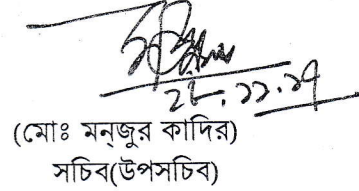 ২৮.১১.১৭
(মোঃ মন্জুর কাদির)
সচিব(উপসচিব)